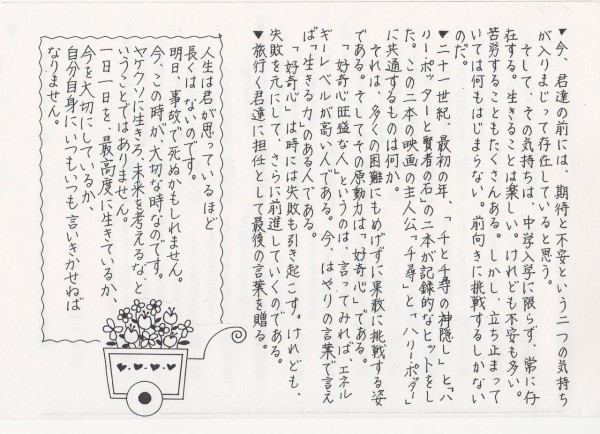 ▼今、君達の前には、期待と不安という二つの気持ち
が入りまじって存在していると思う。
そして、その気持ちは、中学入学に限らず、常に存
在する。生きることは楽しい。けれども不安も多い。
苦労することもたくさんある。しかし、立ち止まって
いては何もはじまらない。前向きに挑戦するしかない
のだ。
▼二十一世紀、最初の年、「千と千尋の神隠し」と「ハ
リーポッターと賢者の石」の二本が記録的なヒットをし
た。この二本の映画の主人公「千尋」と「ハリーポッター」
に共通するものは何か。
それは、多くの困難にもめげずに果敢に挑戦する姿
である。そしてその原動力は「好奇心」である。
「好奇心旺盛な人」というのは、言ってみれば、エネル
ギーレベルが高い人である。今、はやりの言葉で言え
ば「生きる力」のある人である。
「好奇心」は時には失敗も引き起こす。けれども、
失敗を元にして、さらに前進していくのである。
▼旅行く君達に担任として最後の言葉を贈る。
人生は君が思っているほど
長くはないのです。
明日、事故で死ぬかもしれません。
今、この時が大切な時なのです。
ヤケクソに生きろ、未来を考えるな、と
いうことではありません。
一日一日を、最高度に生きているか、
今を大切にしているか、
自分自身にいつもいつも言いきかせねば
なりません。